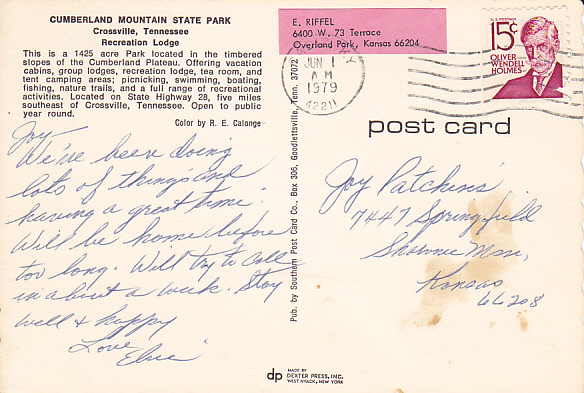 CUMBERLAND MOUNTAIN STATE PARK
Crossville, Tennessee
Recreation Lodge
This is a 1425 acre Park located in the timbered
slopes of the Cumberland Plateau. Offering vacation
cabins, group lodges, recreation lodge, tea room, and
tent camping areas; picnicking, swimming, boating,
fishing, nature trails, and a full range of recreational
activities. Located on State Highway 28, five miles
southeast of Crossville, Tennessee. Open to public
year round.
Color by R. E. Calonge
Joy,
We've been doing
lots of things and
having a great time.
Will be home before
too long. Will try to call
in about a week. Stay
well & happy
Love,
Elsie
Pub. by Southern Post Card Co., Box 306, Goodlettsville, Tenn. 37072
E. RIFFEL
6400 W. 73 Terrace
Overland Park, Kansas 66204
JUN 1
AM
1979
42211
U.S. POSTAGE
15¢
OLIVER
WENDELL
HOLMES
post card
Joy Patchins
7447 Springfield
Shawnee Msn,
Kansas
66208
dp
MADE BY
DEXTER PRESS, INC.
WEST NYACK, NEW YORK